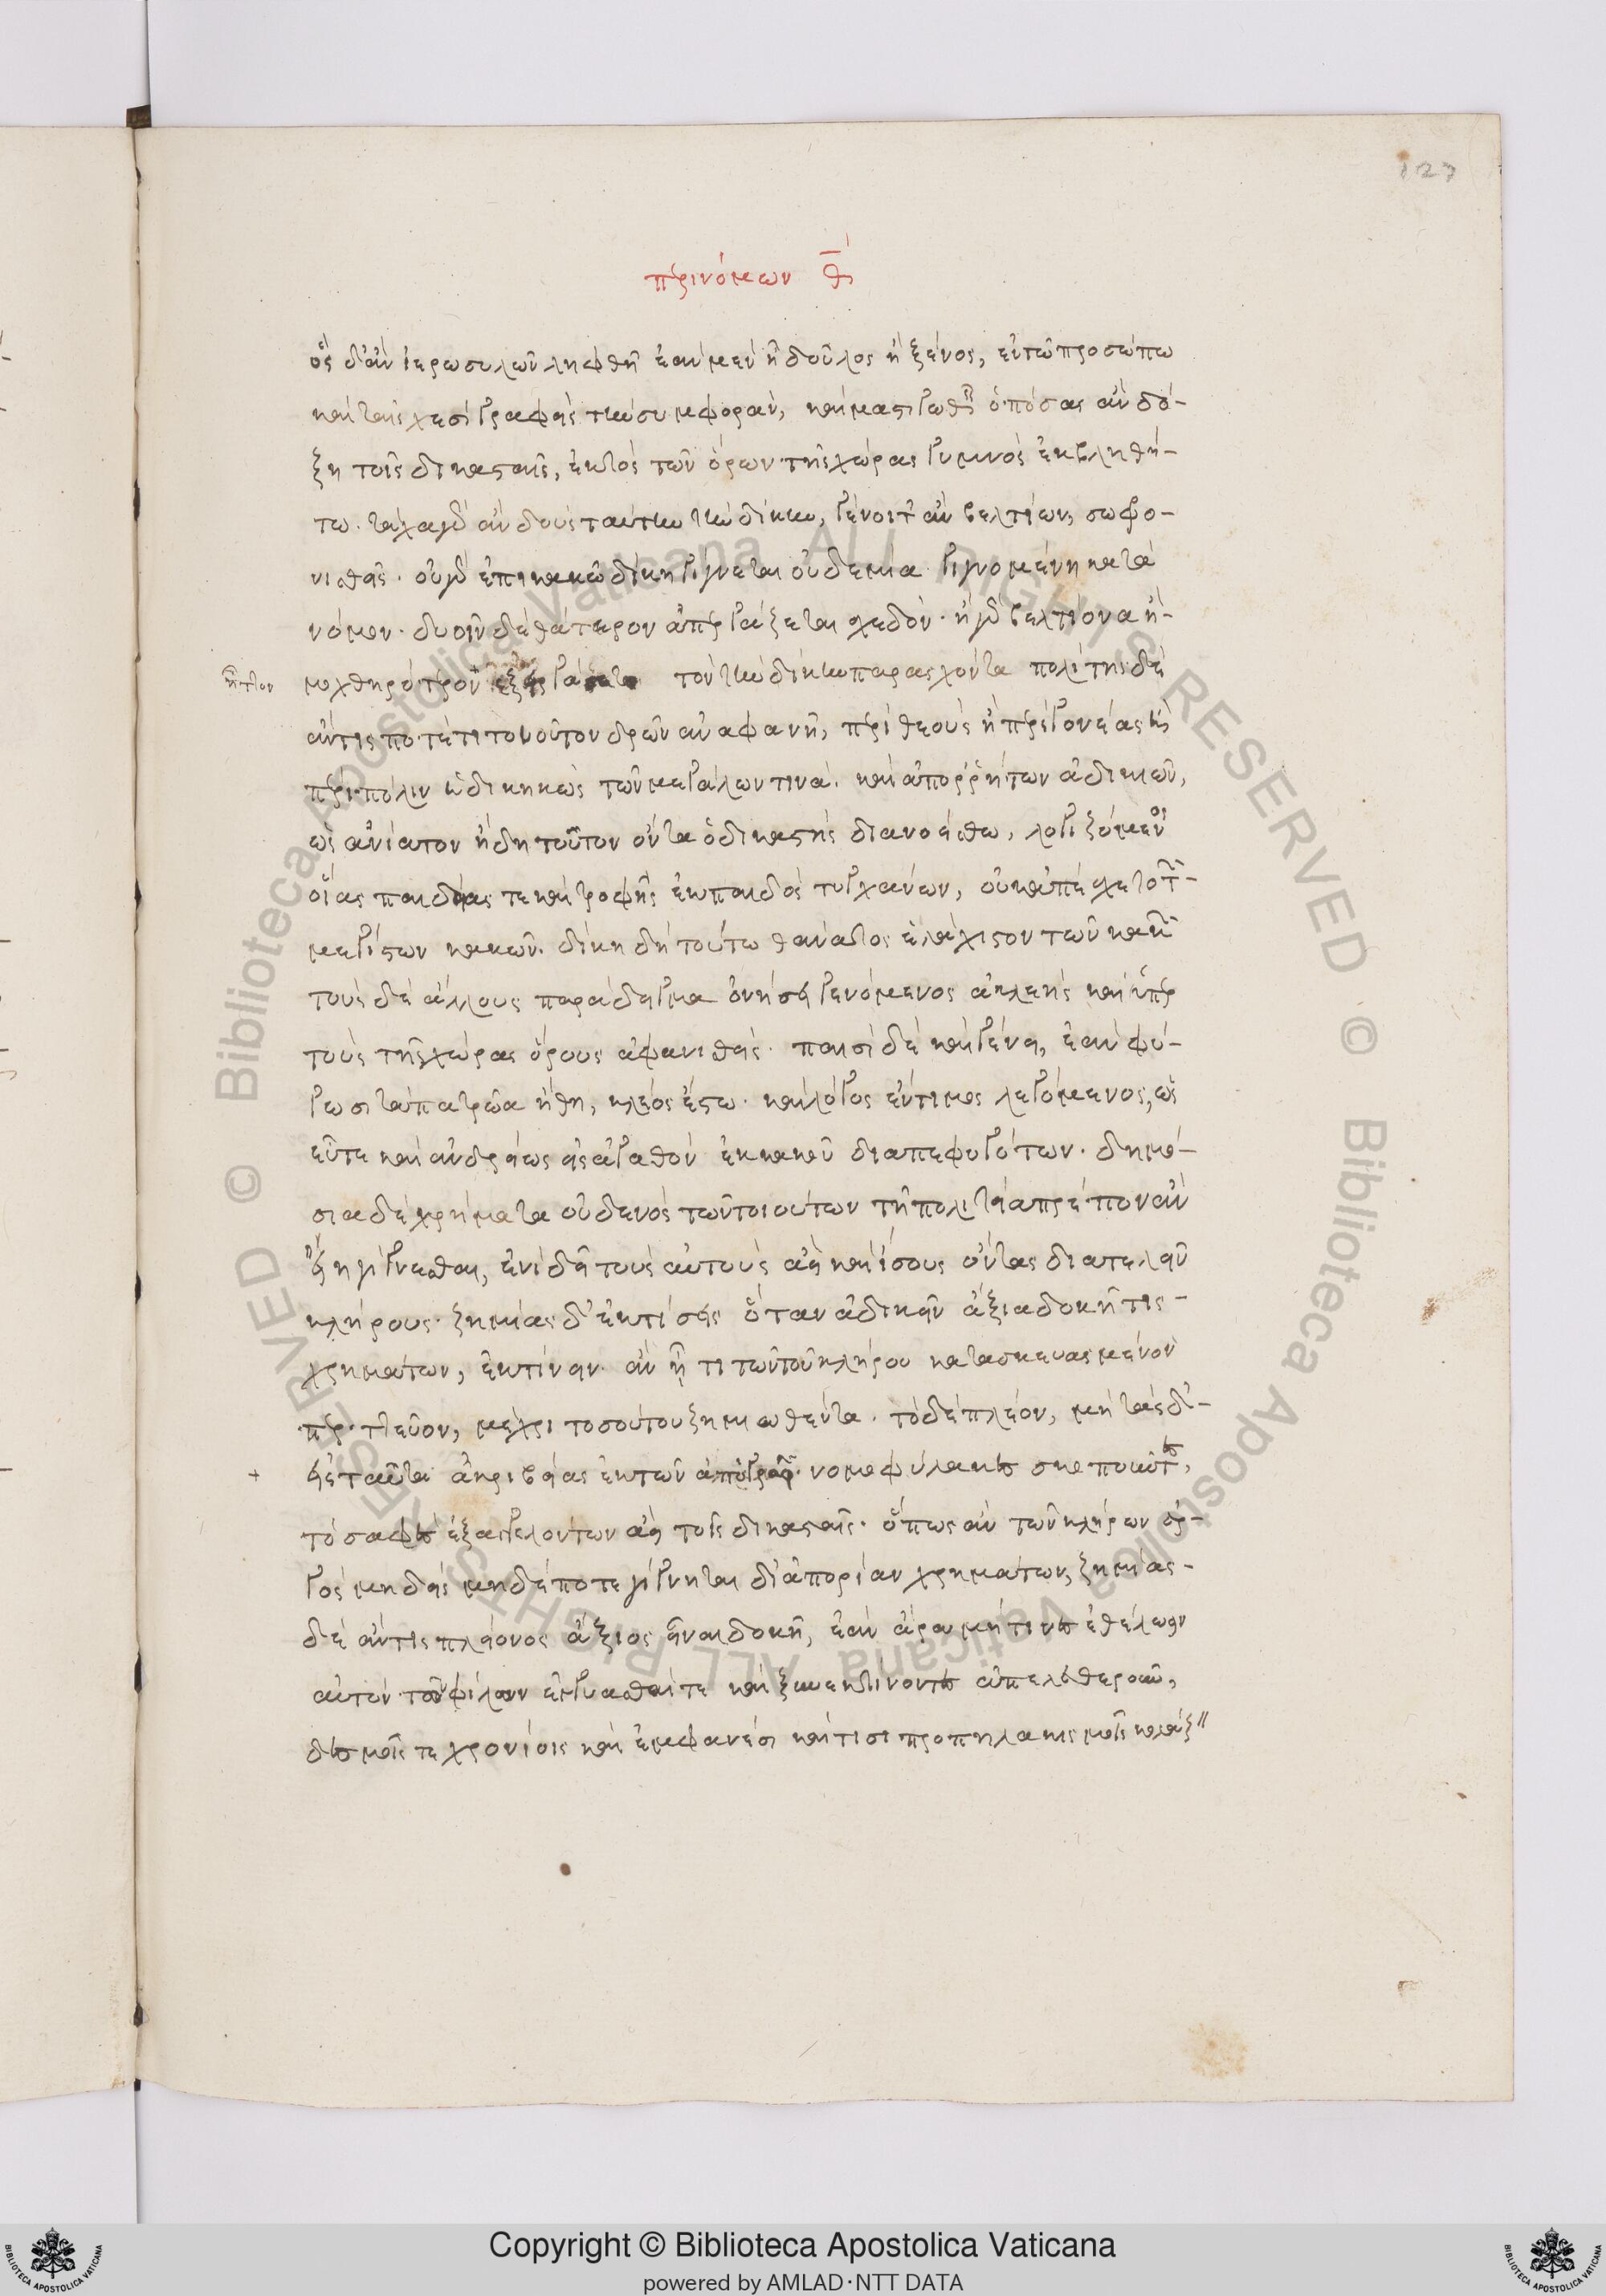 127
περὶ νόμων θ
ὃς δ' ἂν ἱεροσυλῶν ληφθῆ ἐὰν μὲν ἦ δοῦλος ἢ ξένος, ἐν τῶ προσώπω
καὶ ταῖς χερσὶ γραφεὶς τὴν συμφορὰν, καὶ μαστιγωθεὶς ὁπόσας ἂν δό-
ξη τοῖς δικασταῖς, ἐκτὸς τῶν ὅρων τῆς χώρας γυμνὸς ἐκβληθή-
τω. τάχα γὰρ ἂν δοὺς ταύτην τὴν δίκην, γένοιτ' ἂν βελτίων, σωφρο-
νισθείς. οὐ γὰρ ἐπὶ κακῶ δίκη γίγνεται οὐδεμία γιγνομένη κατὰ
νόμον. δυοῖν δὲ θάτερον ἀπεργάζεται σχεδόν. ἢ γὰρ βελτίονα ἢ
ἧττον
μοχθηρότερον τὸν τὴν δίκην παρασχόντα πολίτης δὲ
ἄν τις ποτέ τι τοιοῦτον δρῶν ἀναφανῆ, περὶ θεοὺς ἢ περὶ γονέας ἢ
περὶ πόλιν ἠδικηκὼς τῶν μεγάλων τινὰ καὶ ἀπορρήτων ἀδικιῶν,
ὡς ἀνίατον ἤδη τοῦτον ὄντα ὁ δικαστὴς διανοείσθω, λογιζόμενος
οἵας παιδείας τε καὶ τροφῆς ἐκ παιδὸς τυγχάνων, οὐκ ἀπέσχετο τῶν
μεγίστων κακῶν. δίκη δὴ τούτω θάνατος ἐλάχιστον τῶν κακῶν
τοὺς δὲ ἄλλους παράδειγμα ὀνήσει γενόμενος ἀκλεὴς καὶ ὑπὲρ
τοὺς τῆς χώρας ὅρους ἀφανισθείς. παισὶ δὲ καὶ γένει, ἐὰν φύ-
γωσι τὰ πατρῶα ἤθη, κλέος ἔστω. καὶ λόγος ἔντιμος λεγόμενος, ὡς
εὖ τε καὶ ἀνδρείως εἰς ἀγαθὸν ἐκ κακοῦ διαπεφυγότων. δημό-
σια δὲ χρήματα οὐδενὸς τῶν τοιούτων τῆ πολιτεία πρέπον ἂν
εἴη γίγνεσθαι, ἐν ἧ δεῖ τοὺς αὐτοὺς ἀεὶ καὶ ἴσους ὄντας διατελεῖν
κλήρους. ζημίας δ' ἐκτίσεις ὅταν ἀδικεῖν ἄξια δοκῆ τις
χρημάτων, ἐκτίνειν. ἂν ἦ τι τῶν τοῦ κλήρου κατεσκευασμένου
περιττεῦον, μέχρι τοσούτου ζημιωθέντα. τὸ δὲ πλέον, μή τὰς δ'
εἰς ταῦτα ἀκριβείας ἐκ τῶν ἀπογραφῶν νομοφύλακας σκοποῦντας,
τὸ σαφὲς ἐξαγγελόντων ἀεὶ τοῖς δικασταῖς. ὅπως ἂν τῶν κλήρων ἀρ-
γὸς μηδεὶς μηδέποτε γίγνηται δι' ἀπορίαν χρημάτων, ζημίας
δὲ ἄν τις πλείονος ἄξιος εἶναι δοκῆ, ἐὰν ἄρα μή τινες ἐθέλωσιν
αὐτὸν τῶν φίλων ἐγγυᾶσθαί τε καὶ ξυνεκτίνοντες ἀπελευθεροῦν,
δεσμοῖς τε χρονίοις καὶ ἐμφανέσι καί τισι προπηλακισμοῖς κολάζειν